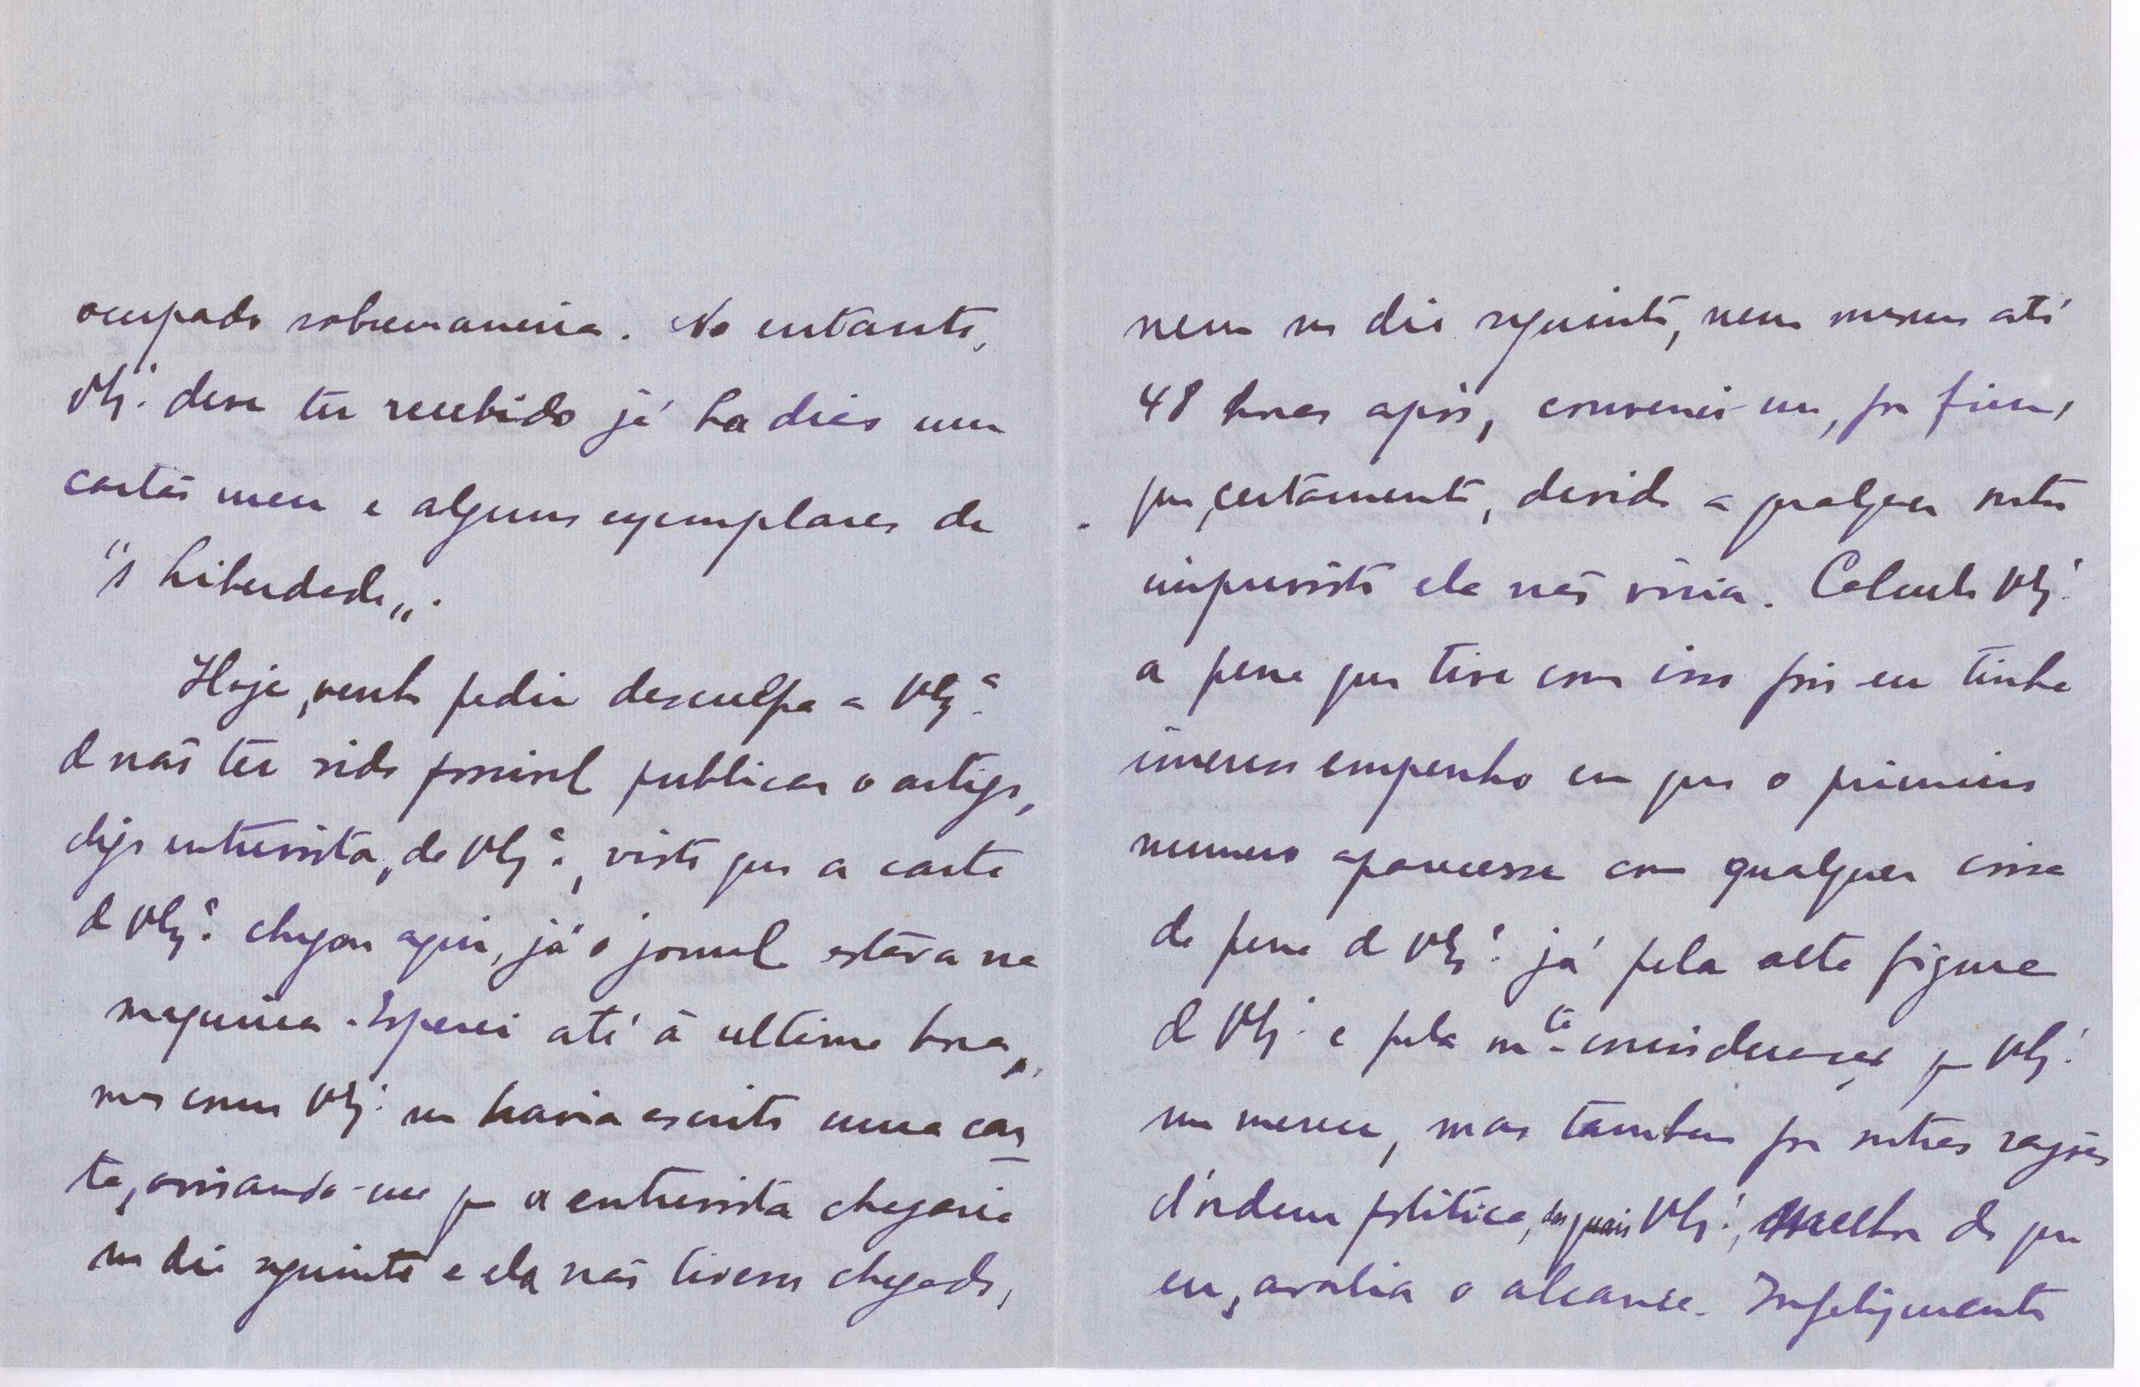 ocupado sobremaneira. No entanto,
V. Ex.ª deve ter recebido já ha dias um
cartão meu e alguns exemplares da
"A Liberdade".
Hoje, venho pedir desculpa a V. Ex.ª
de não ter sido possivel publicar o artigo,
digo entrevista, de V. Ex.ª, visto que a carta
de V. Ex.ª chegou aqui, já o jornal estáva na
maquina. Esperei até á ultima hora,
mas como V. Ex.ª me havia escrito uma car
ta, avisando-me q a entrevista chegaria
no dia seguinte e ela não tivesse chegado,
nem no dia seguinte, nem mesmo até
48 horas após, convenci-me, por fim,
que, certamente, devido a qualquer outro
imprevisto ela não viria. Calcule V. Ex.ª
a pena que tive com isso pois eu tinha
imenso empenho em que o primeiro
numero aparecesse com qualquer coisa
da pena de V. Ex.ª já pela alta figura
de V. Ex.ª e pela m.ta consideração q V. Ex.ª
me merece, mas tambem por outras razões
d'ordem politica, das quais V. Ex.ª, melhor do que
eu, avalia o alcance. Infelizmente